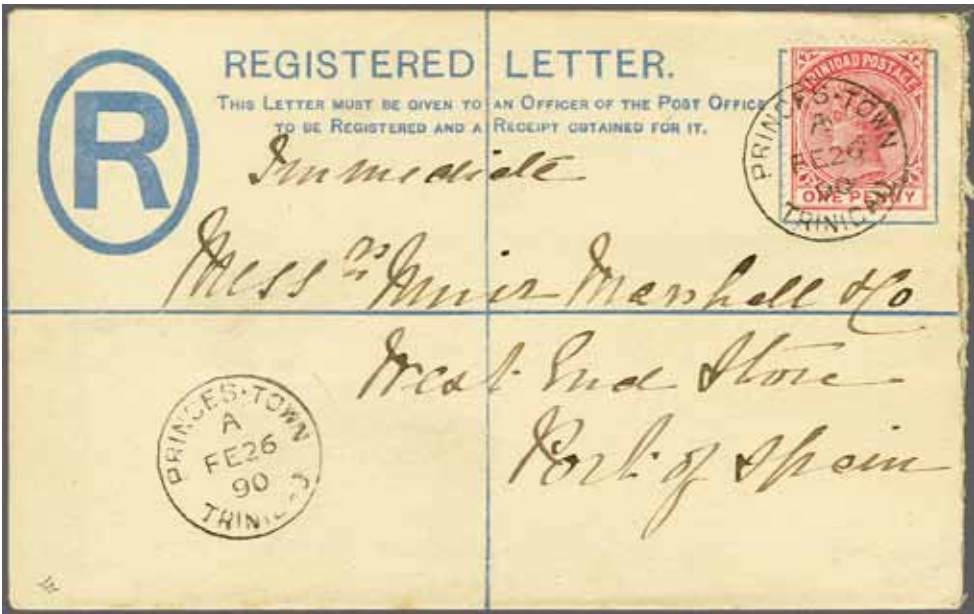 R
REGISTERED LETTER.
THIS LETTER MUST BE GIVEN TO AN OFFICER OF THE POST OFFICE
TO BE REGISTERED AND A RECEIPT OBTAINED FOR IT.
TRINIDAD POSTAGE
ONE PENNY
PRINCES·TOWN
A
FE26
90
TRINIDAD
Immediate
Messrs Muir Marshall & Co
West End Store
Port of Spain
PRINCES·TOWN
A
FE26
90
TRINIDAD